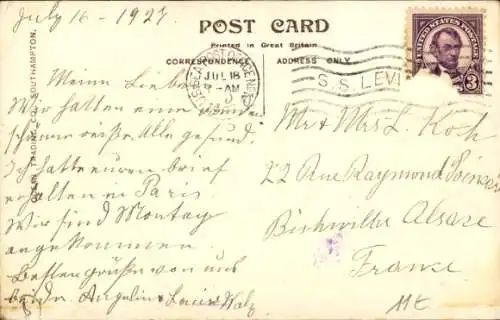 July 16 - 1927
POST CARD
Printed in Great Britain
CORRESPONDENCE
ADDRESS ONLY
TRADING CO., SOUTHAMPTON.
JUL 18
AM
S.S. LEVI
UNITED STATES POSTAGE
3
Meine Lieben
Wir hatten eine
schöne reiße. Alle gesund.
Ich hatte euren brief
erhalten in Paris.
Wir sind Montag
angekommen.
Besten grüße von uns
beide. Angelin Louis Walz
Mr & Mrs L. Koh
22 Rue Raymond Poincaré
Bishwiller Alsace
France